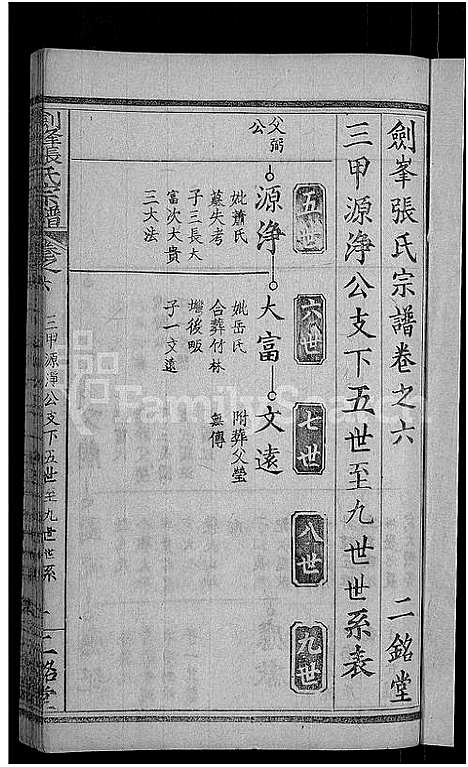 劍峯張氏宗譜卷之六 二銘堂
三甲源淨公支下五世至九世世系表
五世
六世
七世
八世
九世
父弼
公
源淨
大富
文遠
妣蕭氏
墓失考
子三長大
富次大貴
三大法
妣岳氏
合葬付林
壪後畈
子一文遠
附葬父瑩
無傳
劍峯張氏宗譜
卷之六
三甲源淨公支下五世至九世世系
二銘堂
FamilySearch